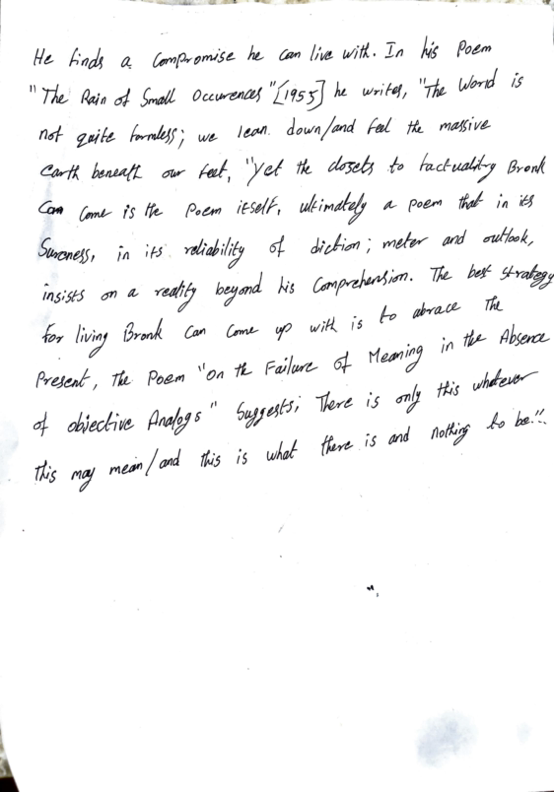 He finds a compromise he can live with. In his Poem
"The Rain of Small Occurences"[1955] he writes, "The World is
not quite formless; we lean down/and feel the massive
Earth beneath our feet, "yet the closets to factuality Bronk
Can Come is the Poem itself, ultimately a poem that in its
Sureness, in its reliability of diction; meter and outlook,
insists on a reality beyond his Comprehension. The best strategy
for living Bronk Can Come up with is to abrace The
Present, The Poem "on the Failure of Meaning in the Absence
of objective Analogs" Suggests; There is only this whatever
this may mean/and this is what there is and nothing to be!!.